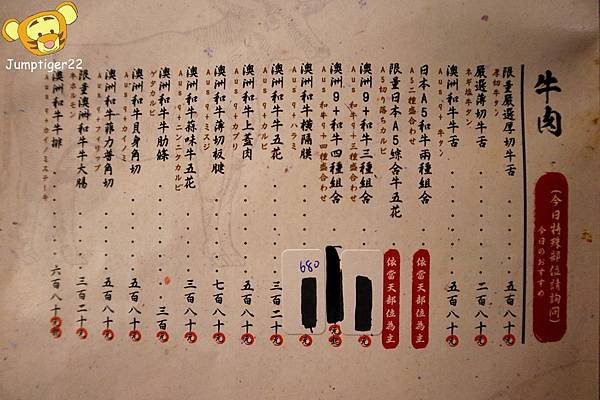 Jumptiger22
牛肉
(今日特殊部位請詢問)
今日のおすすめ
限量嚴選厚切牛舌 五百八十元
厚切牛タン
嚴選薄切牛舌 二百八十元
ネギ塩牛タン
澳洲和牛牛舌 五百八十元
Aus 9+ 牛タン
日本A5和牛兩種組合 依當天部位為主
A5二種盛合わせ
限量日本A5綜合牛五花 依當天部位為主
A5切り落ちカルビ
澳洲9+和牛三種組合 元
Aus 和牛9+三種盛合わせ
澳洲9+和牛四種組合 元
Aus 和牛9+四種盛合わせ
澳洲和牛橫隔膜 680 元
Aus 9+ハラミ
澳洲和牛牛五花 三百二十元
Aus 9+カルビ
澳洲和牛上蓋肉 五百八十元
Aus 9+カブリ
澳洲和牛薄切板腱 七百八十元
Aus 9+ミスジ
澳洲和牛蒜味牛五花 三百八十元
Aus 9+ニンニクカルビ
澳洲和牛牛肋條 三百元
ゲタカルビ
澳洲和牛貝身角切 五百八十元
Aus 9+カイノミ
澳洲和牛菲力普角切 五百八十元
限量澳洲和牛牛大腸 三百二十元
牛ホルモン
澳洲和牛牛排 六百八十元
Aus 9+カイノミステーキ